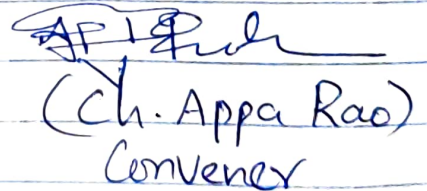 (Ch. Appa Rao)
Convener